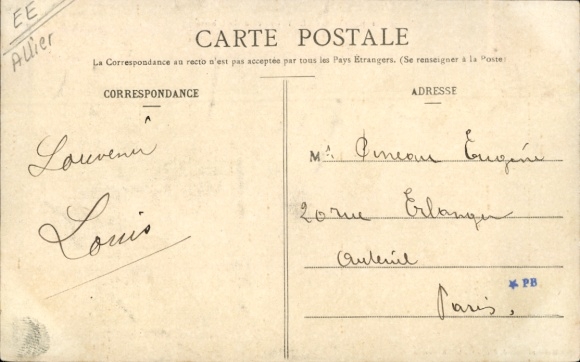 EE
Allier
CARTE POSTALE
La Correspondance au recto n'est pas acceptée par tous les Pays Étrangers. (Se renseigner à la Poste)
CORRESPONDANCE
Souvenir
Louis
ADRESSE
M. Pineau Eugène
20 rue Erlanger
Auteuil
Paris.
PB